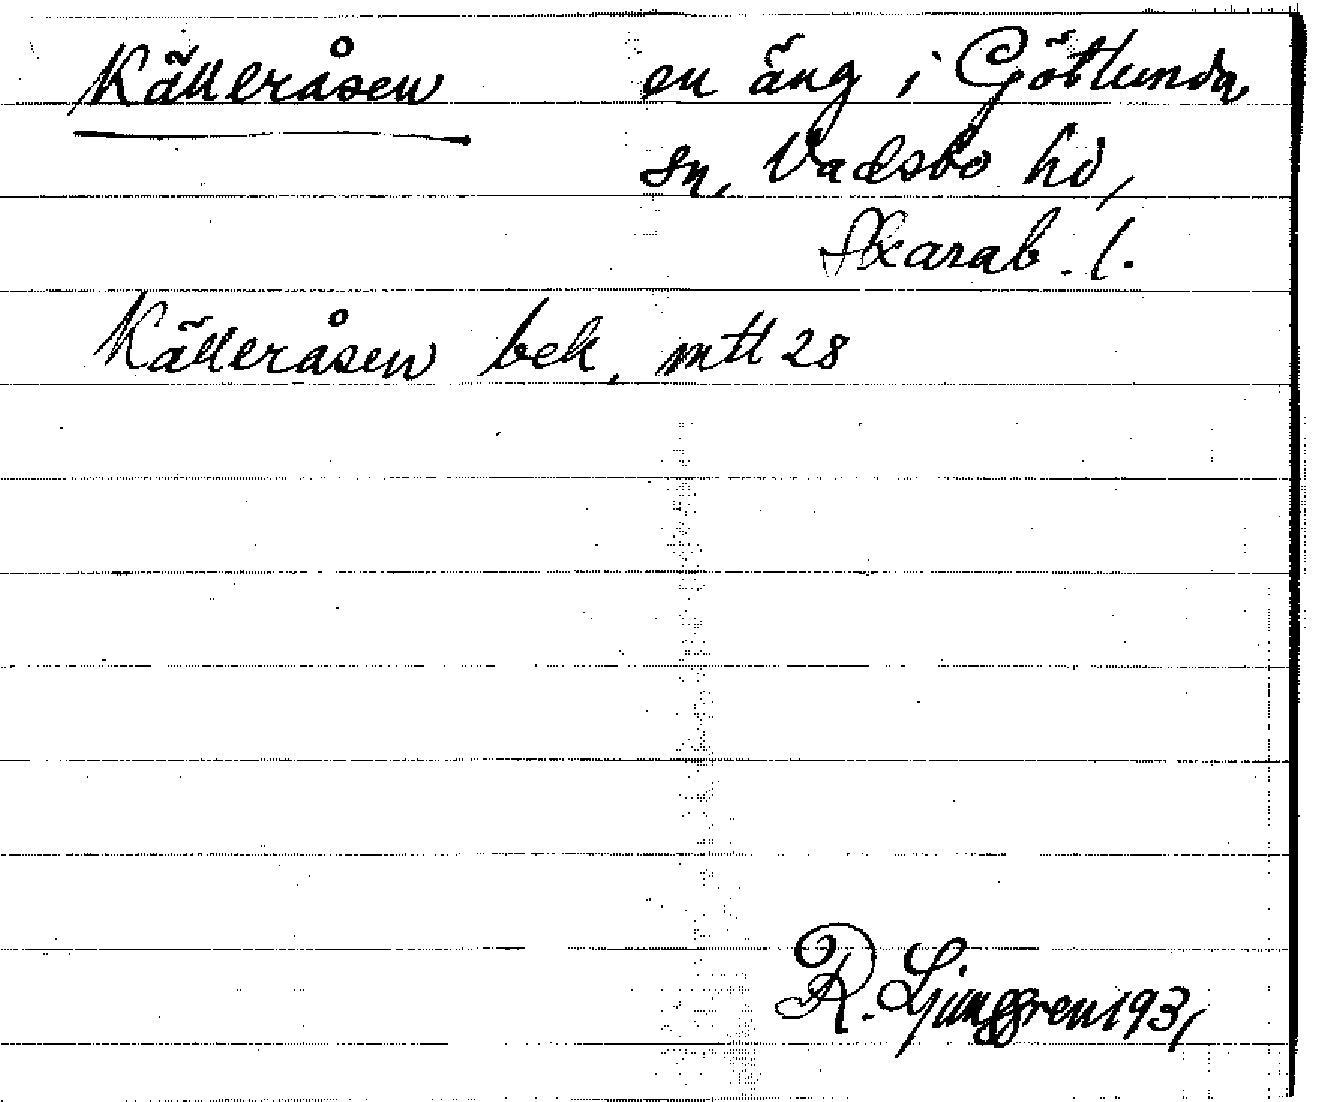 Källeråsen en äng i Götlunda
sn, Vadsbo hd,
Skarab. l.
Källeråsen bek. mtl 28
R. Ljunggren 1931